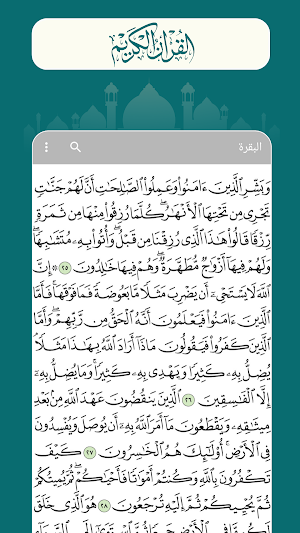 القرآن الكريم
البقرة
وَبَشِّرِ ٱلَّذِينَ ءَامَنُوا۟ وَعَمِلُوا۟ ٱلصَّٰلِحَٰتِ أَنَّ لَهُمْ جَنَّٰتٍ
تَجْرِى مِن تَحْتِهَا ٱلْأَنْهَٰرُ ۖ كُلَّمَا رُزِقُوا۟ مِنْهَا مِن ثَمَرَةٍ
رِّزْقًا قَالُوا۟ هَٰذَا ٱلَّذِى رُزِقْنَا مِن قَبْلُ ۖ وَأُتُوا۟ بِهِۦ مُتَشَٰبِهًا ۖ
وَلَهُمْ فِيهَآ أَزْوَٰجٌ مُّطَهَّرَةٌ ۖ وَهُمْ فِيهَا خَٰلِدُونَ ٢٥ ۞ إِنَّ
ٱللَّهَ لَا يَسْتَحْىِۦٓ أَن يَضْرِبَ مَثَلًا مَّا بَعُوضَةً فَمَا فَوْقَهَا ۚ فَأَمَّا
ٱلَّذِينَ ءَامَنُوا۟ فَيَعْلَمُونَ أَنَّهُ ٱلْحَقُّ مِن رَّبِّهِمْ ۖ وَأَمَّا
ٱلَّذِينَ كَفَرُوا۟ فَيَقُولُونَ مَاذَآ أَرَادَ ٱللَّهُ بِهَٰذَا مَثَلًا ۘ
يُضِلُّ بِهِۦ كَثِيرًا وَيَهْدِى بِهِۦ كَثِيرًا ۚ وَمَا يُضِلُّ بِهِۦٓ
إِلَّا ٱلْفَٰسِقِينَ ٢٦ ٱلَّذِينَ يَنقُضُونَ عَهْدَ ٱللَّهِ مِنۢ بَعْدِ
مِيثَٰقِهِۦ وَيَقْطَعُونَ مَآ أَمَرَ ٱللَّهُ بِهِۦٓ أَن يُوصَلَ وَيُفْسِدُونَ
فِى ٱلْأَرْضِ ۚ أُو۟لَٰٓئِكَ هُمُ ٱلْخَٰسِرُونَ ٢٧ كَيْفَ
تَكْفُرُونَ بِٱللَّهِ وَكُنتُمْ أَمْوَٰتًا فَأَحْيَٰكُمْ ۖ ثُمَّ يُمِيتُكُمْ
ثُمَّ يُحْيِيكُمْ ثُمَّ إِلَيْهِ تُرْجَعُونَ ٢٨ هُوَ ٱلَّذِى خَلَقَ
لَكُم مَّا فِى ٱلْأَرْضِ جَمِيعًا ثُمَّ ٱسْتَوَىٰٓ إِلَى